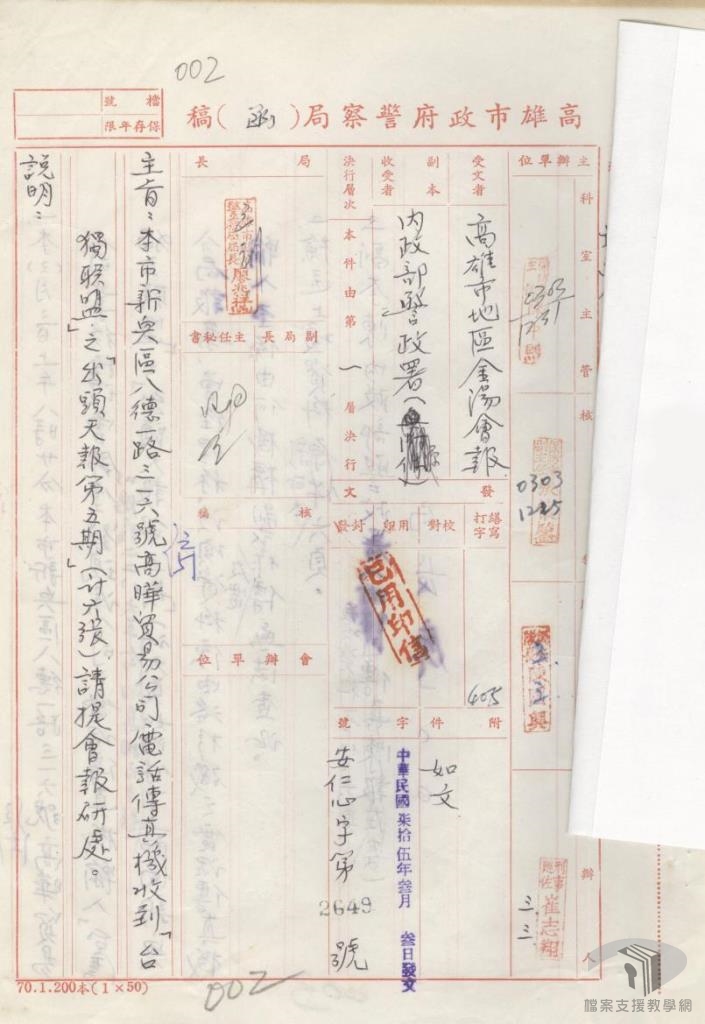 002
高雄市政府警察局（函）稿
檔號
保存年限
主辦單位
科室主管
核
辦人
0303
1731
0303
1225
三.三
刑事
崔志翔
三.三
受文者
高雄市地區金湯會報
副本
收受者
內政部警政署
決行層次
本件由第一層決行
發文
繕寫
打字
校對
用印
封發
已用印信
405
附件
如文
字號
中華民國柒拾伍年叁月叁日發文
安仁心字第2649號
局長
廖兆祥
副局長
主任秘書
核稿
會辦單位
主旨：本市新興區八德一路三一六號高曄貿易公司電話傳真機收到「台
獨联盟」之「出頭天報第五期」（計六張）請提會報研處。
說明：
70.1.200本(1×50)
002
檔案支援教學網